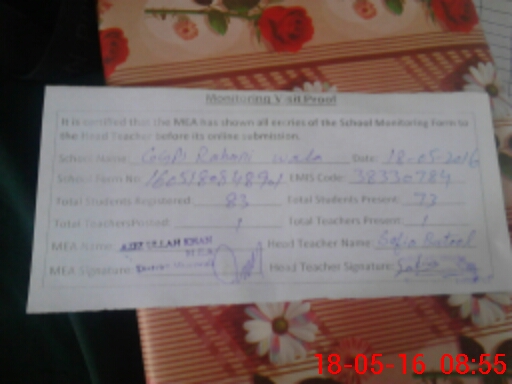 Monitoring Visit Proof
It is certified that the MEA has shown all entries of the School Monitoring Form to
the Head Teacher before its online submission.
School Name: Raham wala Date: 18-05-2016
School Form No: EMIS Code: 38330784
Total Students Registered: 83 Total Students Present: 73
Total Teachers Posted: 1 Total Teachers Present: 1
MEA Name: AZIZ ULLAH KHAN Head Teacher Name: Safia Batool
M.E.A
MEA Signature: Head Teacher Signature: Safia
18-05-16 08:55